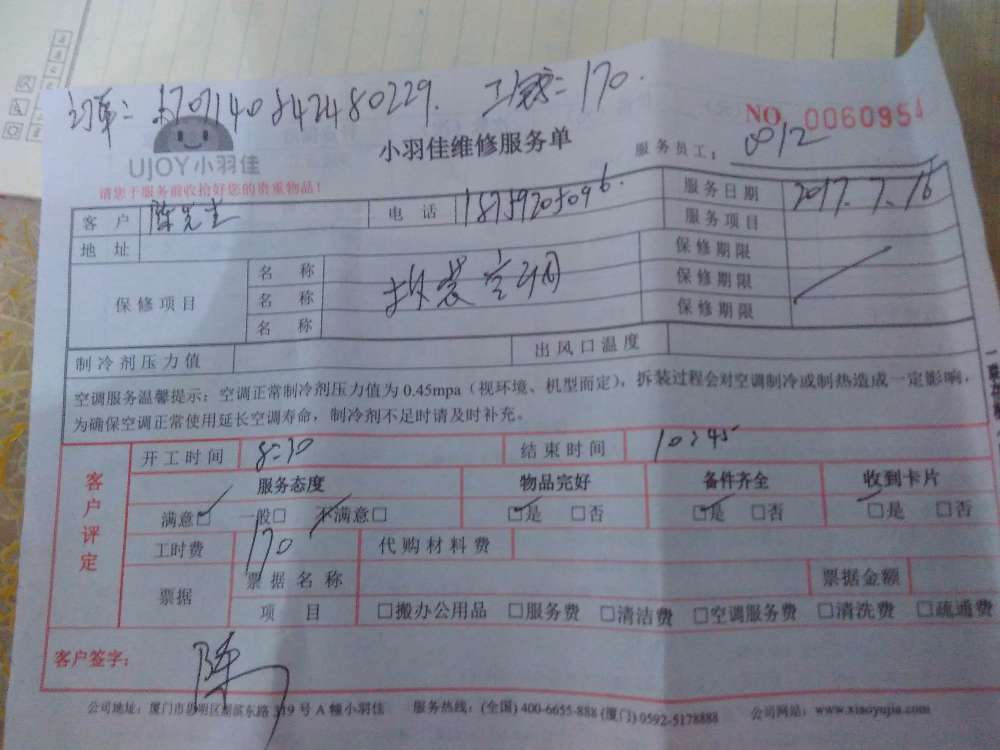 工资：170.
NO. 0060954
UJOY小羽佳
小羽佳维修服务单
服务员工： 012
请您于服务前收拾好您的贵重物品！
客 户 陈先生 电 话 服务日期 2017.7.16
地 址 服务项目
保修项目 名 称 拆装空调 保修期限
名 称 保修期限
名 称 保修期限
制冷剂压力值 出风口温度
空调服务温馨提示：空调正常制冷剂压力值为0.45mpa（视环境、机型而定），拆装过程会对空调制冷或制热造成一定影响，
为确保空调正常使用延长空调寿命，制冷剂不足时请及时补充。
客户评定
开工时间 8:30 结束时间 10:45
服务态度 物品完好 备件齐全 收到卡片
满意□ 一般□ 不满意□ □是 □否 □是 □否 □是 □否
工时费 170 代购材料费
票据 票据名称 票据金额
项 目 □搬办公用品 □服务费 □清洁费 □空调服务费 □清洗费 □疏通费
客户签字： 陈
公司地址：厦门市思明区湖滨东路319号A幢小羽佳 服务热线：(全国) 400-6655-888 (厦门) 0592-5178888 公司网站：www.xiaoyujia.com